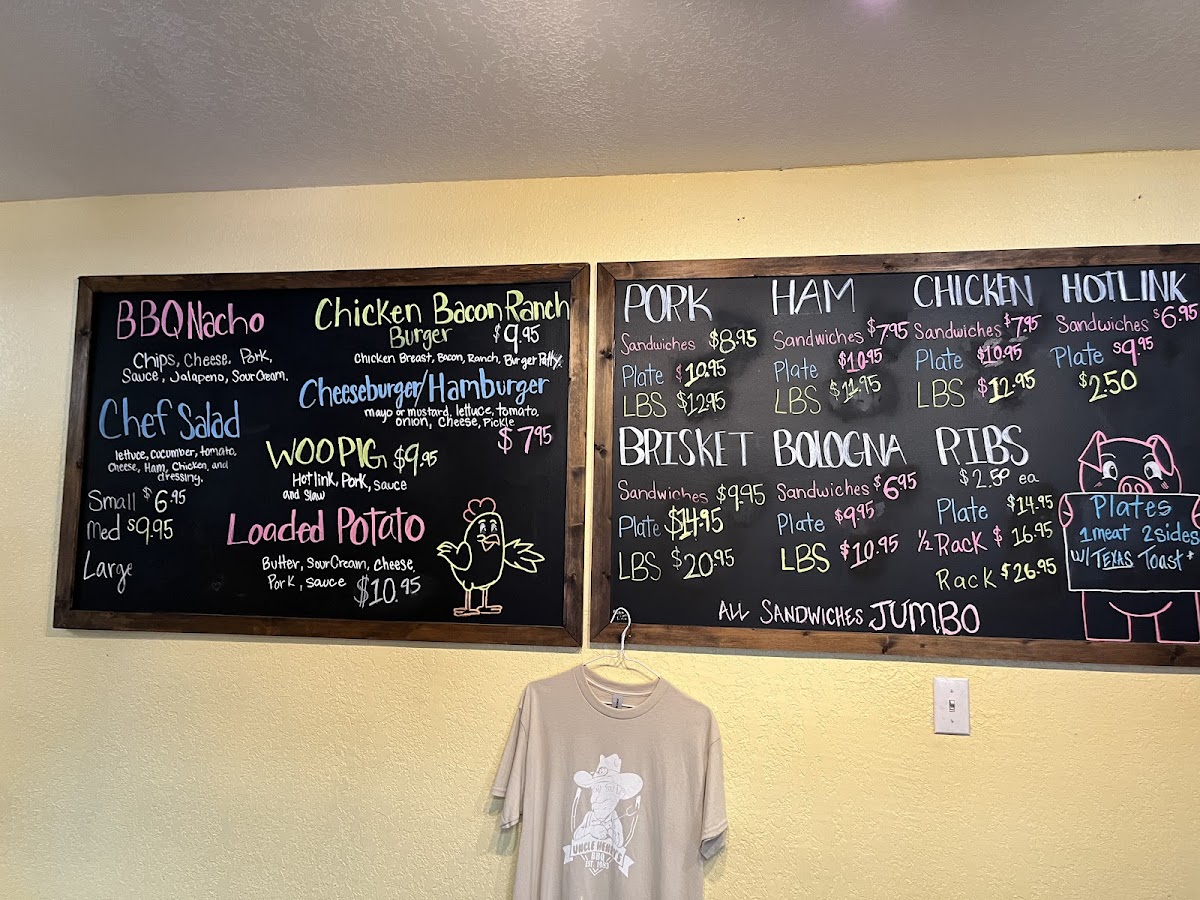 BBQ Nacho
Chips, Cheese, Pork,
Sauce, Jalapeno, Sour Cream.
Chef Salad
lettuce, cucumber, tomato,
Cheese, Ham, Chicken, and
dressing.
Small $6.95
Med $9.95
Large
Chicken Bacon Ranch
Burger $9.95
Chicken Breast, Bacon, Ranch, Burger Patty
Cheeseburger/Hamburger
mayo or mustard, lettuce, tomato,
onion, Cheese, Pickle
$7.95
WOO PIG $9.95
Hotlink, Pork, sauce
and slaw
Loaded Potato
Butter, Sour Cream, cheese,
Pork, sauce $10.95
PORK
Sandwiches $8.95
Plate $10.95
LBS $12.95
HAM
Sandwiches $7.95
Plate $10.95
LBS $11.95
CHICKEN
Sandwiches $7.95
Plate $10.95
LBS $12.95
HOTLINK
Sandwiches $6.95
Plate $9.95
$2.50
BRISKET
Sandwiches $9.95
Plate $14.95
LBS $20.95
BOLOGNA
Sandwiches $6.95
Plate $9.95
LBS $10.95
RIBS
$2.50 ea
Plate $14.95
1/2 Rack $16.95
Rack $26.95
Plates
1 meat 2 sides
W/ TEXAS Toast
ALL SANDWICHES JUMBO
UNCLE
BBQ
EST.